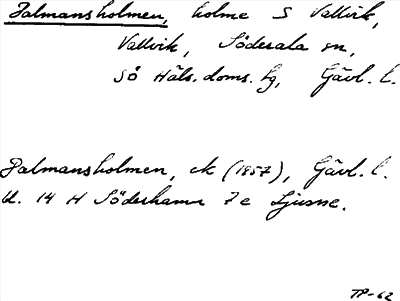 Dalmansholmen, holme S Vallvik,
Vallvik, Söderala sn,
Sö Häls. doms. hg, Gävl. l.
Dalmansholmen, ek (1957), Gävl. l.
U. 14 H Söderhamn 7 e Ljusne.
TP-62